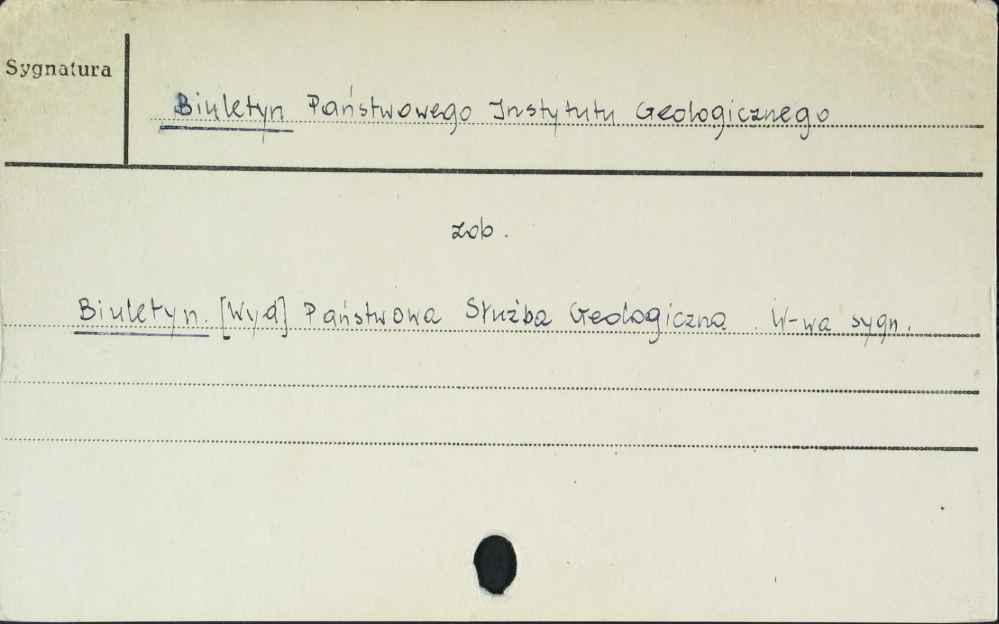 Sygnatura
Biuletyn Państwowego Instytutu Geologicznego
zob.
Biuletyn. [Wyd] Państwowa Służba Geologiczna. W-wa sygn.